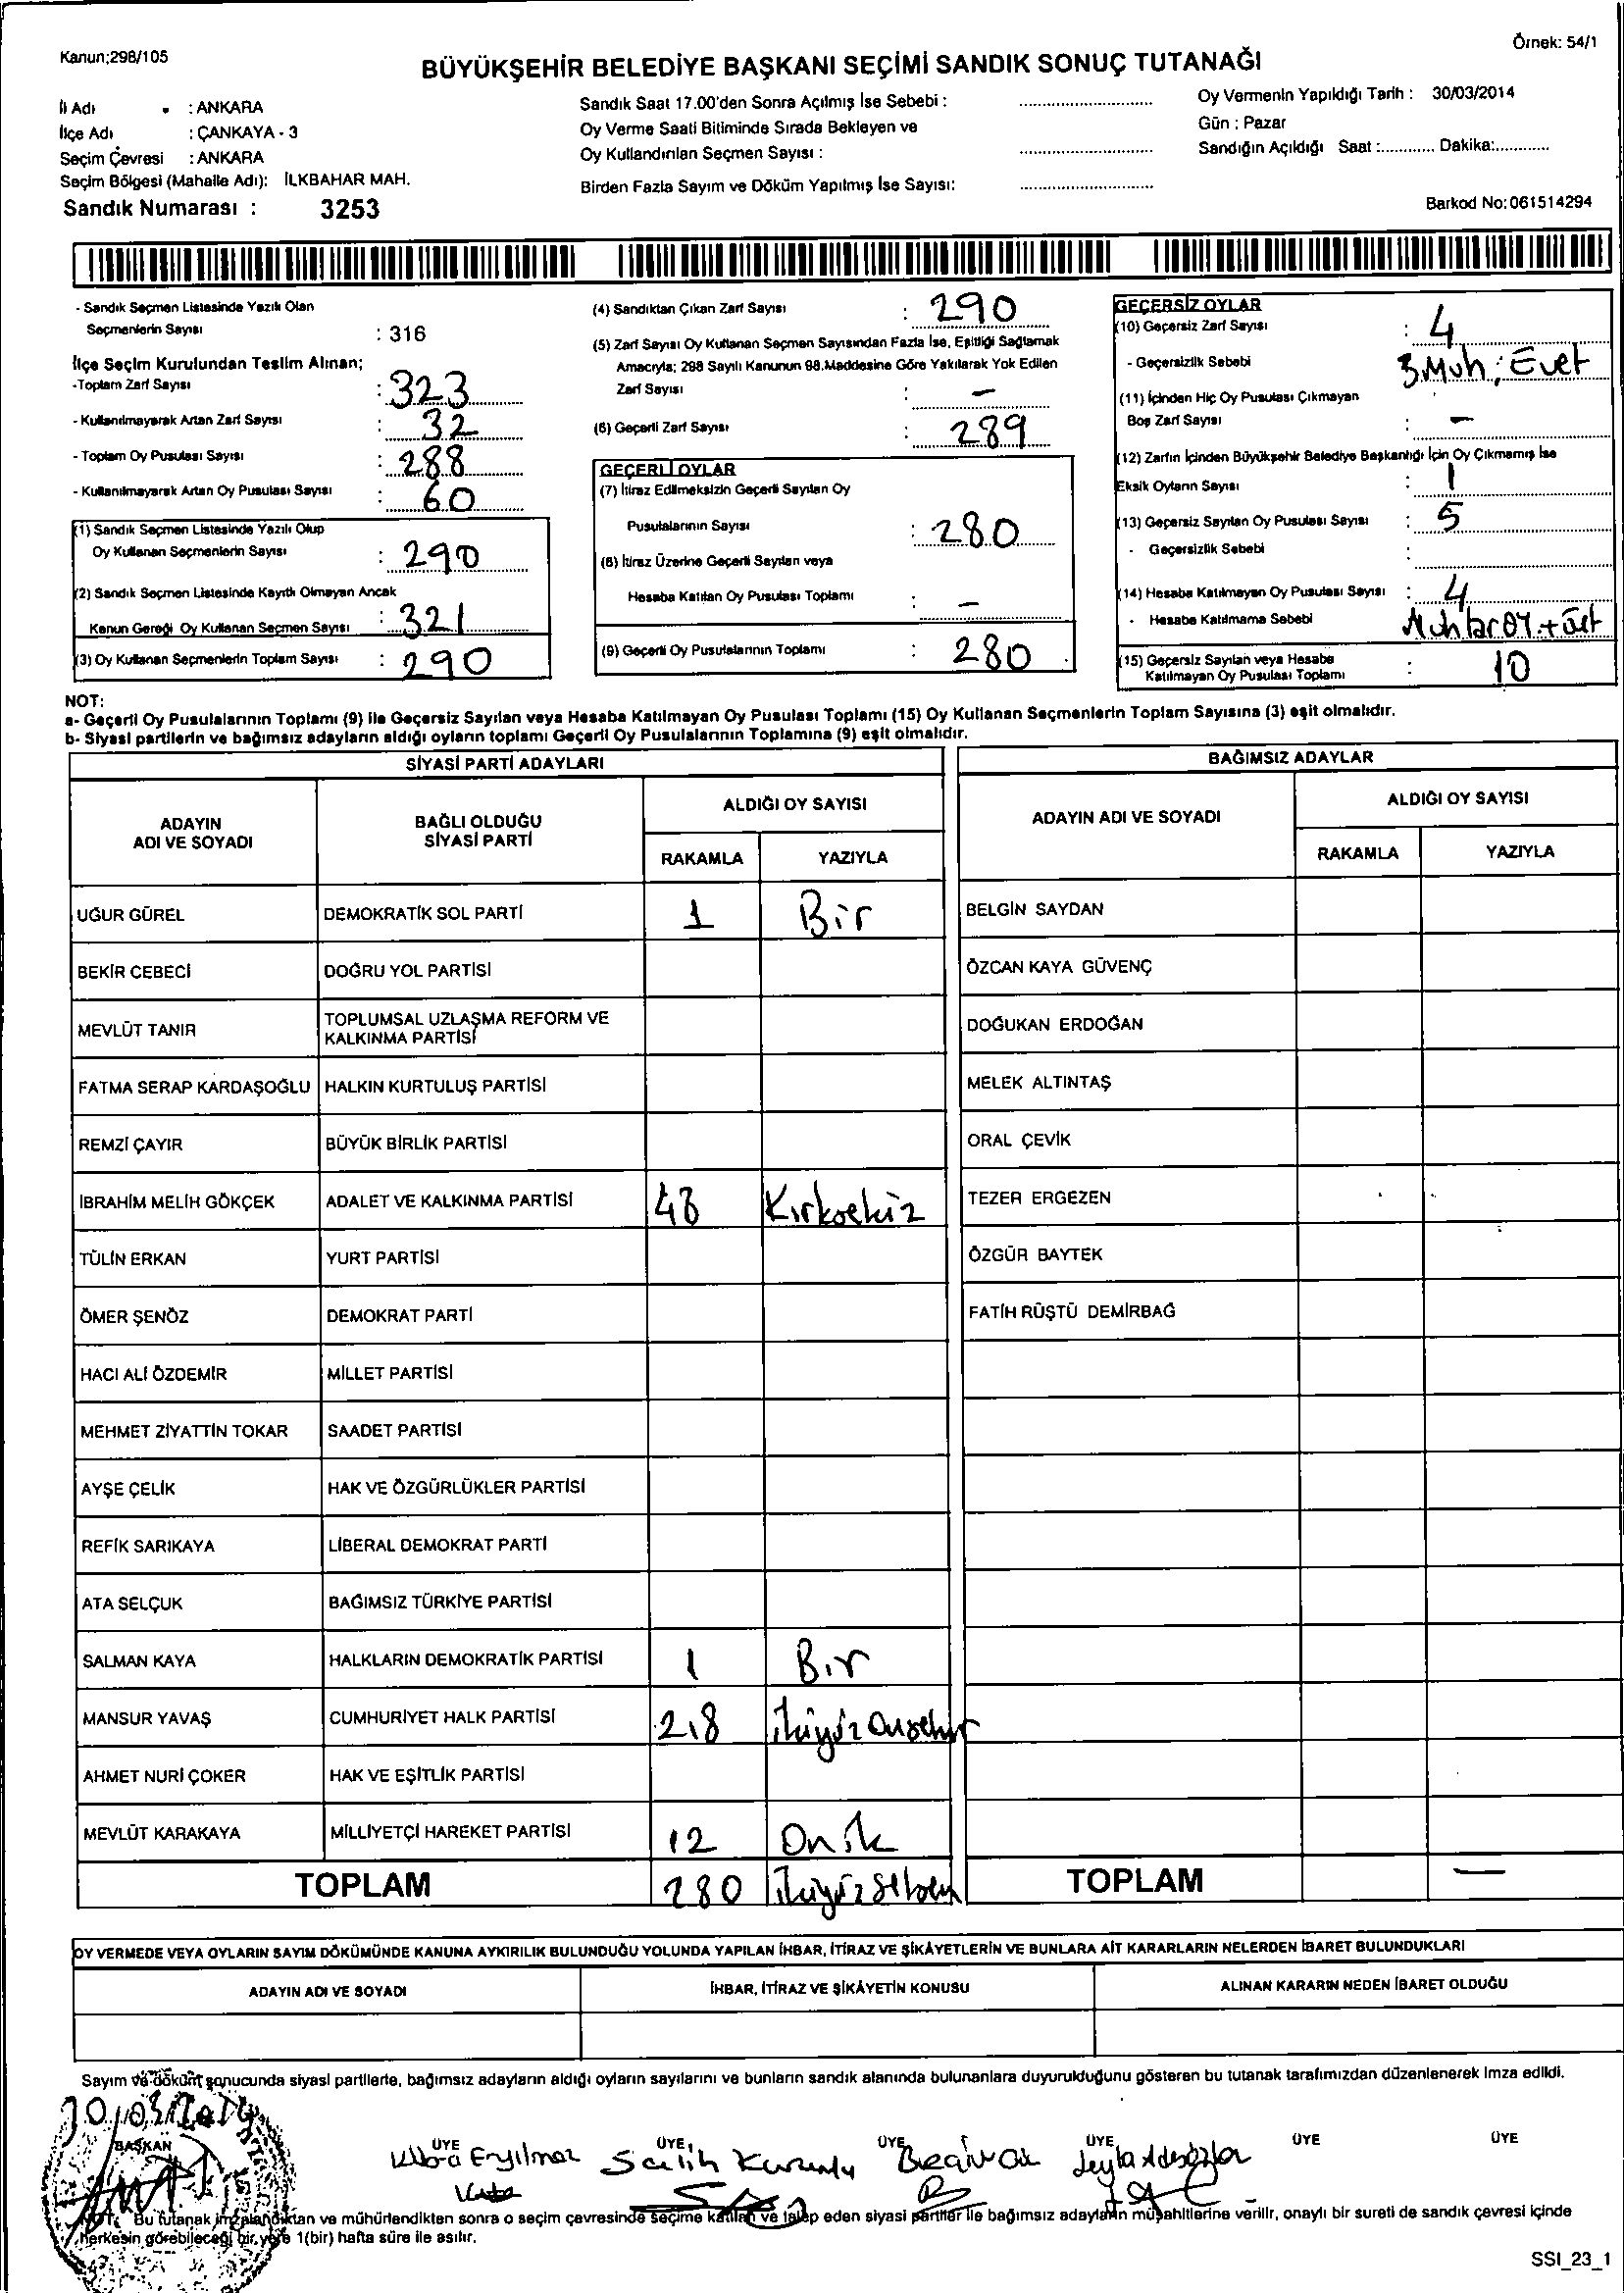 Kanun;298/105
Örnek: 54/1
BÜYÜKŞEHİR BELEDİYE BAŞKANI SEÇİMİ SANDIK SONUÇ TUTANAĞI
İl Adı : ANKARA
İlçe Adı : ÇANKAYA - 3
Seçim Çevresi : ANKARA
Seçim Bölgesi (Mahalle Adı): İLKBAHAR MAH.
Sandık Numarası : 3253
Sandık Saat 17.00'den Sonra Açılmış İse Sebebi :
Oy Verme Saati Bitiminde Sırada Bekleyen ve
Oy Kullandırılan Seçmen Sayısı :
Birden Fazla Sayım ve Döküm Yapılmış İse Sayısı:
Oy Vermenin Yapıldığı Tarih : 30/03/2014
Gün : Pazar
Sandığın Açıldığı Saat :............ Dakika:............
Barkod No:061514294
- Sandık Seçmen Listesinde Yazılı Olan
Seçmenlerin Sayısı : 316
İlçe Seçim Kurulundan Teslim Alınan;
-Toplam Zarf Sayısı : 323
- Kullanılmayarak Artan Zarf Sayısı : 32
- Toplam Oy Pusulası Sayısı : 288
- Kullanılmayarak Artan Oy Pusulası Sayısı : 60
(1) Sandık Seçmen Listesinde Yazılı Olup
Oy Kullanan Seçmenlerin Sayısı : 290
(2) Sandık Seçmen Listesinde Kayıtlı Olmayan Ancak
Kanun Gereği Oy Kullanan Seçmen Sayısı : 321
(3) Oy Kullanan Seçmenlerin Toplam Sayısı : 290
(4) Sandıktan Çıkan Zarf Sayısı : 290
(5) Zarf Sayısı Oy Kullanan Seçmen Sayısından Fazla İse, Eşitliği Sağlamak
Amacıyla; 298 Sayılı Kanunun 98.Maddesine Göre Yakılarak Yok Edilen
Zarf Sayısı : -
(6) Geçerli Zarf Sayısı : 289
GEÇERLİ OYLAR
(7) İtiraz Edilmeksizin Geçerli Sayılan Oy
Pusulalarının Sayısı : 280
(8) İtiraz Üzerine Geçerli Sayılan veya
Hesaba Katılan Oy Pusulası Toplamı : -
(9) Geçerli Oy Pusulalarının Toplamı : 280
GEÇERSİZ OYLAR
(10) Geçersiz Zarf Sayısı : 4
- Geçersizlik Sebebi 3.Muh; Evet
(11) İçinden Hiç Oy Pusulası Çıkmayan
Boş Zarf Sayısı : -
(12) Zarfın İçinden Büyükşehir Belediye Başkanlığı İçin Oy Çıkmamış İse
Eksik Oyların Sayısı : 1
(13) Geçersiz Sayılan Oy Pusulası Sayısı : 5
- Geçersizlik Sebebi :
(14) Hesaba Katılmayan Oy Pusulası Sayısı : 4
- Hesaba Katılmama Sebebi
(15) Geçersiz Sayılan veya Hesaba
Katılmayan Oy Pusulası Toplamı : 10
NOT:
a- Geçerli Oy Pusulalarının Toplamı (9) ile Geçersiz Sayılan veya Hesaba Katılmayan Oy Pusulası Toplamı (15) Oy Kullanan Seçmenlerin Toplam Sayısına (3) eşit olmalıdır.
b- Siyasi partilerin ve bağımsız adayların aldığı oyların toplamı Geçerli Oy Pusulalarının Toplamına (9) eşit olmalıdır.
SİYASİ PARTİ ADAYLARI
ADAYIN ADI VE SOYADI
BAĞLI OLDUĞU SİYASİ PARTİ
ALDIĞI OY SAYISI
RAKAMLA YAZIYLA
UĞUR GÜREL DEMOKRATİK SOL PARTİ 1 Bir
BEKİR CEBECİ DOĞRU YOL PARTİSİ
MEVLÜT TANIR TOPLUMSAL UZLAŞMA REFORM VE KALKINMA PARTİSİ
FATMA SERAP KARDAŞOĞLU HALKIN KURTULUŞ PARTİSİ
REMZİ ÇAYIR BÜYÜK BİRLİK PARTİSİ
İBRAHİM MELİH GÖKÇEK ADALET VE KALKINMA PARTİSİ 48 Kırksekiz
TÜLİN ERKAN YURT PARTİSİ
ÖMER ŞENÖZ DEMOKRAT PARTİ
HACI ALİ ÖZDEMİR MİLLET PARTİSİ
MEHMET ZİYATTİN TOKAR SAADET PARTİSİ
AYŞE ÇELİK HAK VE ÖZGÜRLÜKLER PARTİSİ
REFİK SARIKAYA LİBERAL DEMOKRAT PARTİ
ATA SELÇUK BAĞIMSIZ TÜRKİYE PARTİSİ
SALMAN KAYA HALKLARIN DEMOKRATİK PARTİSİ 1 Bir
MANSUR YAVAŞ CUMHURİYET HALK PARTİSİ 218 ikiyüz Onsekiz
AHMET NURİ ÇOKER HAK VE EŞİTLİK PARTİSİ
MEVLÜT KARAKAYA MİLLİYETÇİ HAREKET PARTİSİ 12 Onik
TOPLAM 280 ikiyüz seksen
BAĞIMSIZ ADAYLAR
ADAYIN ADI VE SOYADI
ALDIĞI OY SAYISI
RAKAMLA YAZIYLA
BELGİN SAYDAN
ÖZCAN KAYA GÜVENÇ
DOĞUKAN ERDOĞAN
MELEK ALTINTAŞ
ORAL ÇEVİK
TEZER ERGEZEN
ÖZGÜR BAYTEK
FATİH RÜŞTÜ DEMİRBAĞ
TOPLAM —
OY VERMEDE VEYA OYLARIN SAYIM DÖKÜMÜNDE KANUNA AYKIRILIK BULUNDUĞU YOLUNDA YAPILAN İHBAR, İTİRAZ VE ŞİKÂYETLERİN VE BUNLARA AİT KARARLARIN NELERDEN İBARET BULUNDUKLARI
ADAYIN ADI VE SOYADI İHBAR, İTİRAZ VE ŞİKÂYETİN KONUSU ALINAN KARARIN NEDEN İBARET OLDUĞU
Sayım ve döküm sonucunda siyasi partilerle, bağımsız adayların aldığı oyların sayılarını ve bunların sandık alanında bulunanlara duyurulduğunu gösteren bu tutanak tarafımızdan düzenlenerek imza edildi.
30/03/2014
BAŞKAN ÜYE ÜYE ÜYE ÜYE ÜYE ÜYE
Kübra Eryılmaz Salih
NOT: Bu tutanak imzalandıktan ve mühürlendikten sonra o seçim çevresinde seçime katılan ve talep eden siyasi partiler ile bağımsız adayların müşahitlerine verilir, onaylı bir sureti de sandık çevresi içinde
herkesin görebileceği bir yere 1(bir) hafta süre ile asılır.
SSI_23_1